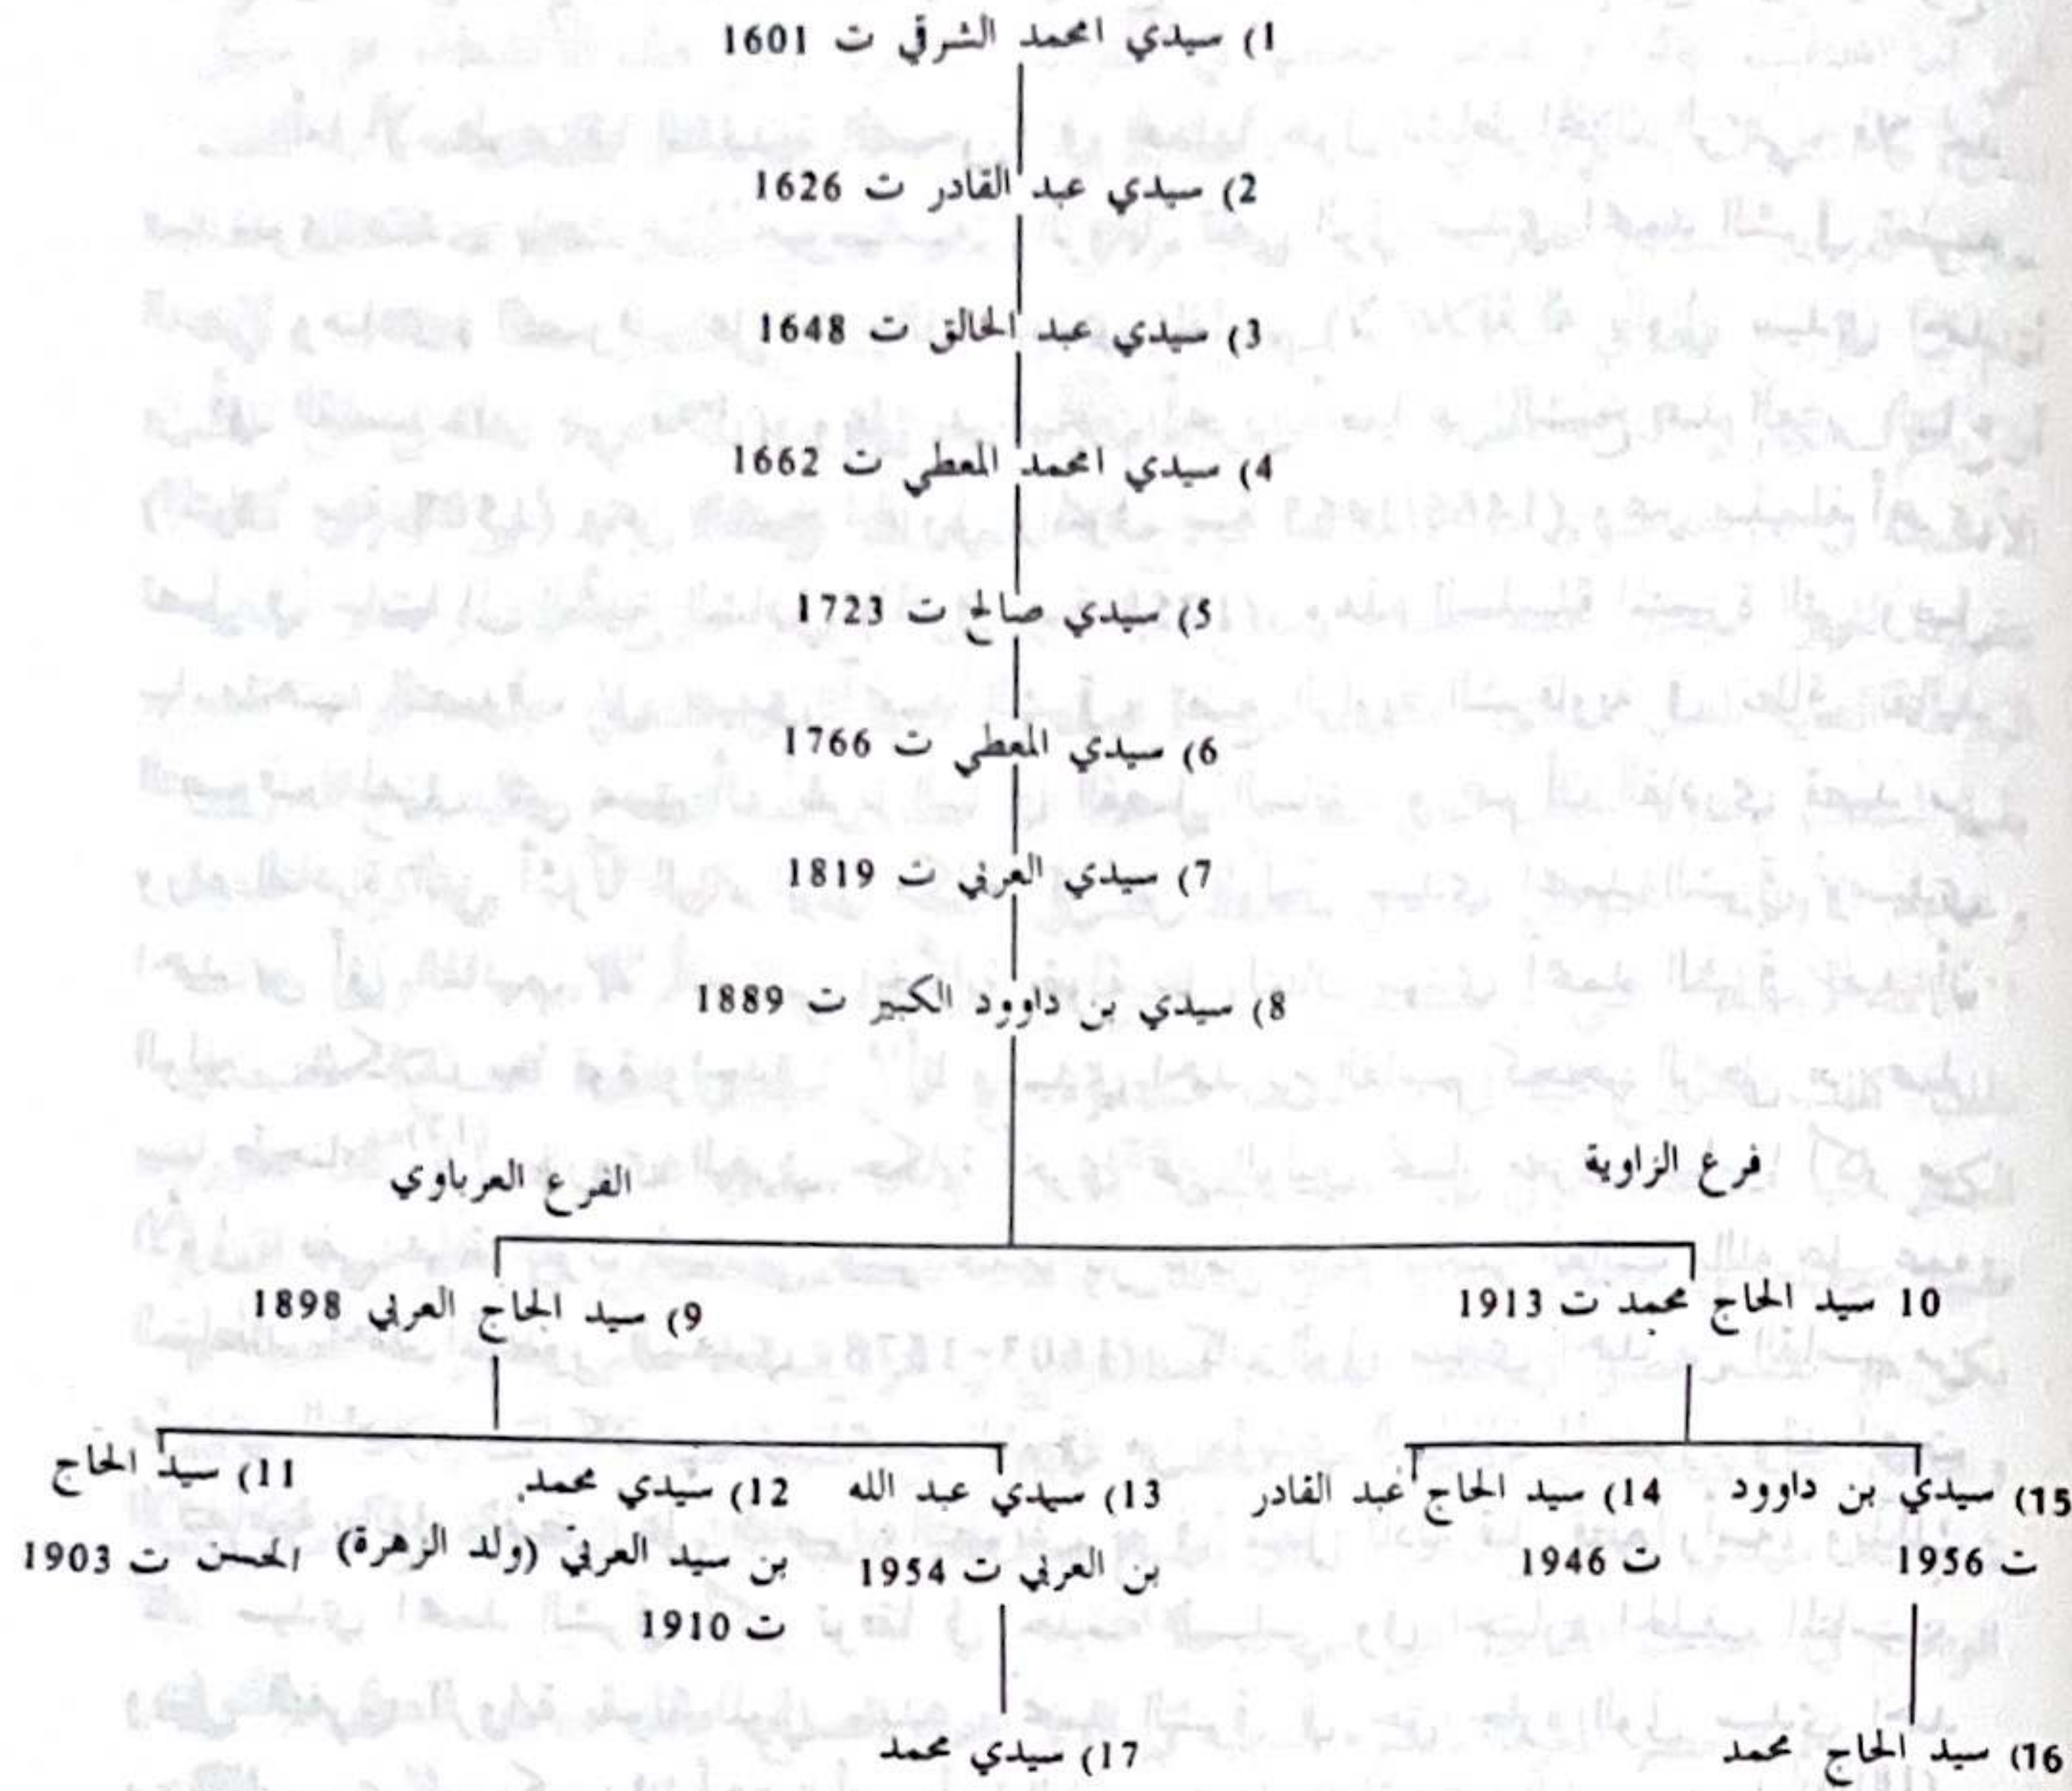 1) سيدي امحمد الشرقي ت 1601
2) سيدي عبد القادر ت 1626
3) سيدي عبد الخالق ت 1648
4) سيدي امحمد المعطي ت 1662
5) سيدي صالح ت 1723
6) سيدي المعطي ت 1766
7) سيدي العربي ت 1819
8) سيدي بن داوود الكبير ت 1889
فرع الزاوية
الفرع العرباوي
10 سيد الحاج محمد ت 1913
9) سيد الحاج العربي 1898
15) سيدي بن داوود
ت 1956
14) سيد الحاج عبد القادر
ت 1946
13) سيدي عبد الله
بن العربي ت 1954
12) سيدي محمد.
بن سيد العربي (ولد الزهرة)
ت 1910
11) سيد الحاج
الحسن ت 1903
16) سيد الحاج محمد
17) سيدي محمد